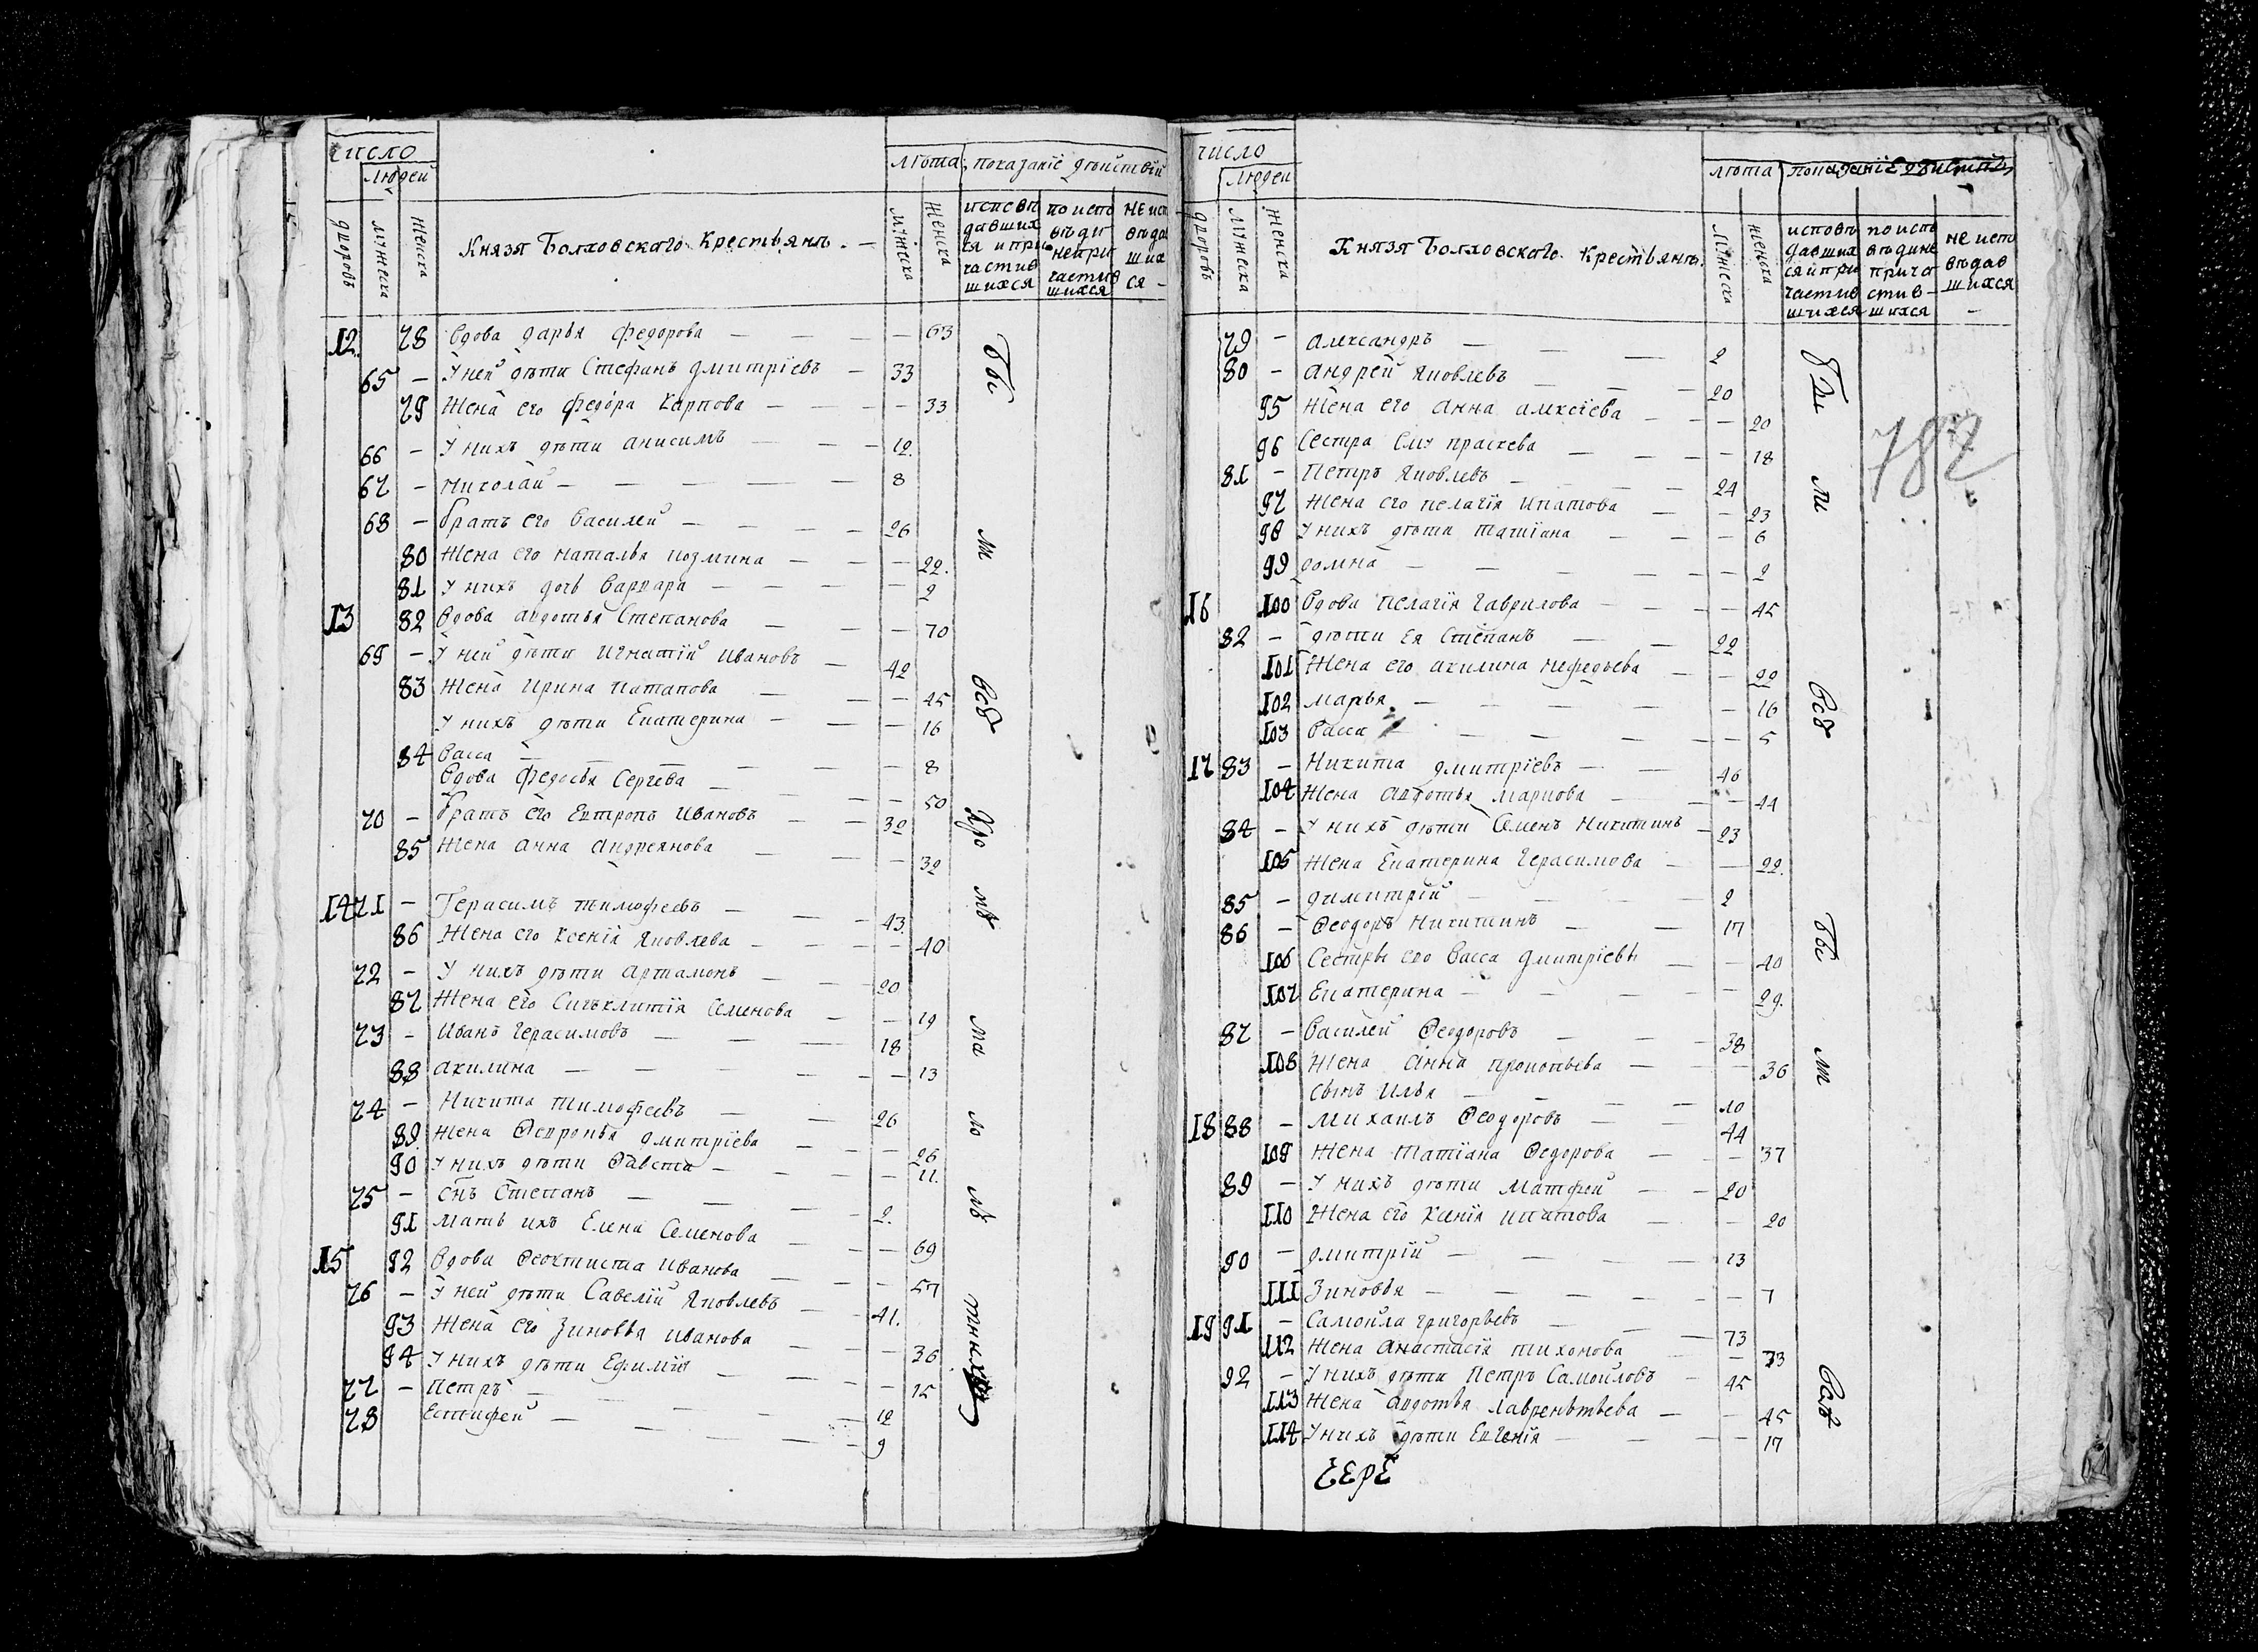 число
людей
лѣта
показанїе дѣйствїй
дворовъ
мужеска
женска
Князя Болховскаго крестьянъ.
мужеска
женска
исповѣ
давших
ся и при
частив
шихся
по испо
вѣди
непри
частив
шихся
не исп
вѣда
ших
ся
12. 78 Вдова дарья федорова — 63
65 — У ней дѣти Стефанъ дмитрїевъ — 33
79 Жена его федора Карпова — 33
66 — У нихъ дѣти анисимъ — 12.
67 — Николай — 8
68 — братъ его василей — 26
80 Жена его наталья козмина — 22.
81 У нихъ дочь варвара — 2
13 82 Вдова авдотья Степанова — 70
69 — У ней дѣти игнатїй ивановъ — 42
83 Жена ирина патапова — 45
У нихъ дѣти Екатерина — 16
84 Васса — 8
Вдова федосья Сергѣва — 50
70 — братъ его Евтропъ ивановъ — 32
85 Жена анна андреянова — 32
14 71 — Герасимъ тимофеевъ — 43.
86 Жена его Ксенїя яковлева — 40
72 — У нихъ дѣти артамонъ — 20
87 Жена его Сигъклитїя Семенова — 19
73 — Иванъ герасимовъ — 18
88 акилина — 13
74 — Никита тимофеевъ — 26
89 Жена Ѳевронья дмитрїева — 26
90 У нихъ дѣти Ѳавста — 11.
75 — снъ Степанъ — 2.
91 мать ихъ Елена Семенова — 69
15 92 Вдова Ѳеоктиста иванова — 57
76 — У ней дѣти Савелїй яковлевъ — 41.
93 Жена его Зиновья иванова — 36
94 У нихъ дѣти Ефимия — 15
77 — Петръ — 12
78 Естифей — 9
число
людей
лѣта
дворовъ
мужеска
женска
Князя Болховскаго крестьянъ.
мужеска
женска
исповѣ
давших
ся и при
частив
шихся
по испо
вѣди не
прича
стив-
шихся
не испо
вѣдав
шихся
79 — александръ — 2
80 — андрей яковлевъ — 20
95 Жена его анна алексїева — 20
96 Сестра ему праскева — 18
81 — Петръ яковлевъ — 24
97 Жена его пелагїя ипатова — 23
98 У нихъ дѣти татїана — 6
99 домна — 2
16 100 Вдова пелагїя гаврилова — 45
82 — дѣти ея Степанъ — 22
101 Жена его акилина нефедьева — 22
102 марья — 16
103 Васса — 5
17 83 — Никита дмитрїевъ — 46
104 Жена авдотья маркова — 44
84 — У нихъ дѣти Семенъ никитинъ — 23
105 Жена Екатерина герасимова — 22.
85 — димитрїй — 2
86 — Ѳеодоръ никитинъ — 17
106 Сестры его Васса дмитрїевы — 40
107 Екатерина — 29.
87 — Василей Ѳеодоровъ — 38
108 Жена анна прокопьева — 36
сынъ илья — 10
18 88 — михаилъ Ѳеодоровъ — 44
109 Жена татїана Ѳедорова — 37
89 — У нихъ дѣти матфей — 20
110 Жена его Ксенїя ипатова — 20
90 — дмитрїй — 13
111 Зиновья — 7
19 91 — Самойла григорьевъ — 73
112 Жена анастасїя тихонова — 73
92 — У нихъ дѣти Петръ Самойловъ — 45
113 Жена авдотья лаврентьева — 45
114 У нихъ дѣти Евгенїя — 17
782